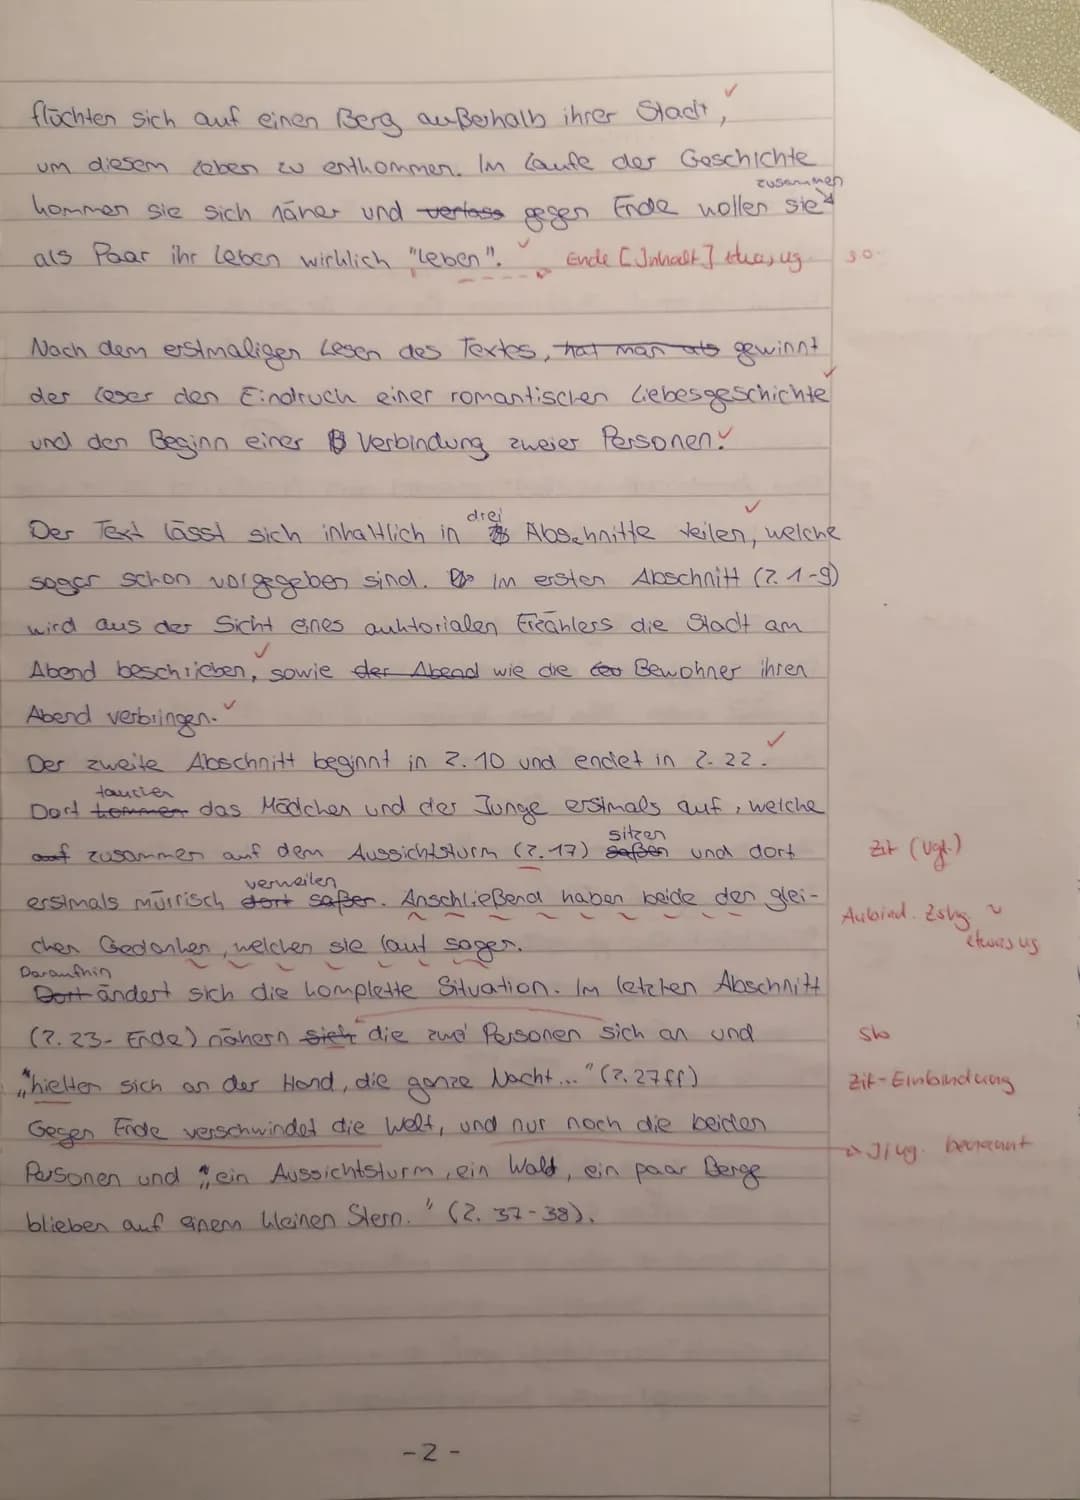 flüchten sich auf einen Berg außerhalb ihrer Stadt,
um diesem Leben zu entkommen. Im Laufe der Geschichte
zusammen
kommen sie sich näher und verlass gegen Ende wollen sie
als Paar ihr Leben wirklich "leben". Ende [Inhalt] etwas ug.
Nach dem erstmaligen Lesen des Textes, hat man als gewinnt
der Leser den Eindruck einer romantischen Liebesgeschichte
und den Beginn einer Verbindung zweier Personen.
drei
Der Text lässt sich inhaltlich in Abschnitte teilen, welche
sogar schon vorgegeben sind. Im ersten Abschnitt (Z. 1-9)
wird aus der Sicht eines auktorialen Erzählers die Stadt am
Abend beschrieben, sowie der Abend wie die Bewohner ihren
Abend verbringen.
Der zweite Abschnitt beginnt in Z. 10 und endet in Z. 22.
tauchen
Dort kommen das Mädchen und der Junge erstmals auf, welche
sitzen
auf zusammen auf dem Aussichtsturm (Z. 17) saßen und dort Zit (Vgl.)
verweilen
erstmals mürrisch dort saßen. Anschließend haben beide den glei-
chen Gedanken, welchen sie laut sagen. etwas ug
Daraufhin
Dort ändert sich die komplette Situation. Im letzten Abschnitt
(Z. 23- Ende) nähern sich die zwei Personen sich an und
„hielten sich an der Hand, die ganze Nacht..." (Z. 27ff) Zit-Einbindung
Gegen Ende verschwindet die Welt, und nur noch die beiden
Personen und „ein Aussichtsturm, ein Wald, ein paar Berge
blieben auf einem kleinen Stern." (Z. 37-38).
-2-